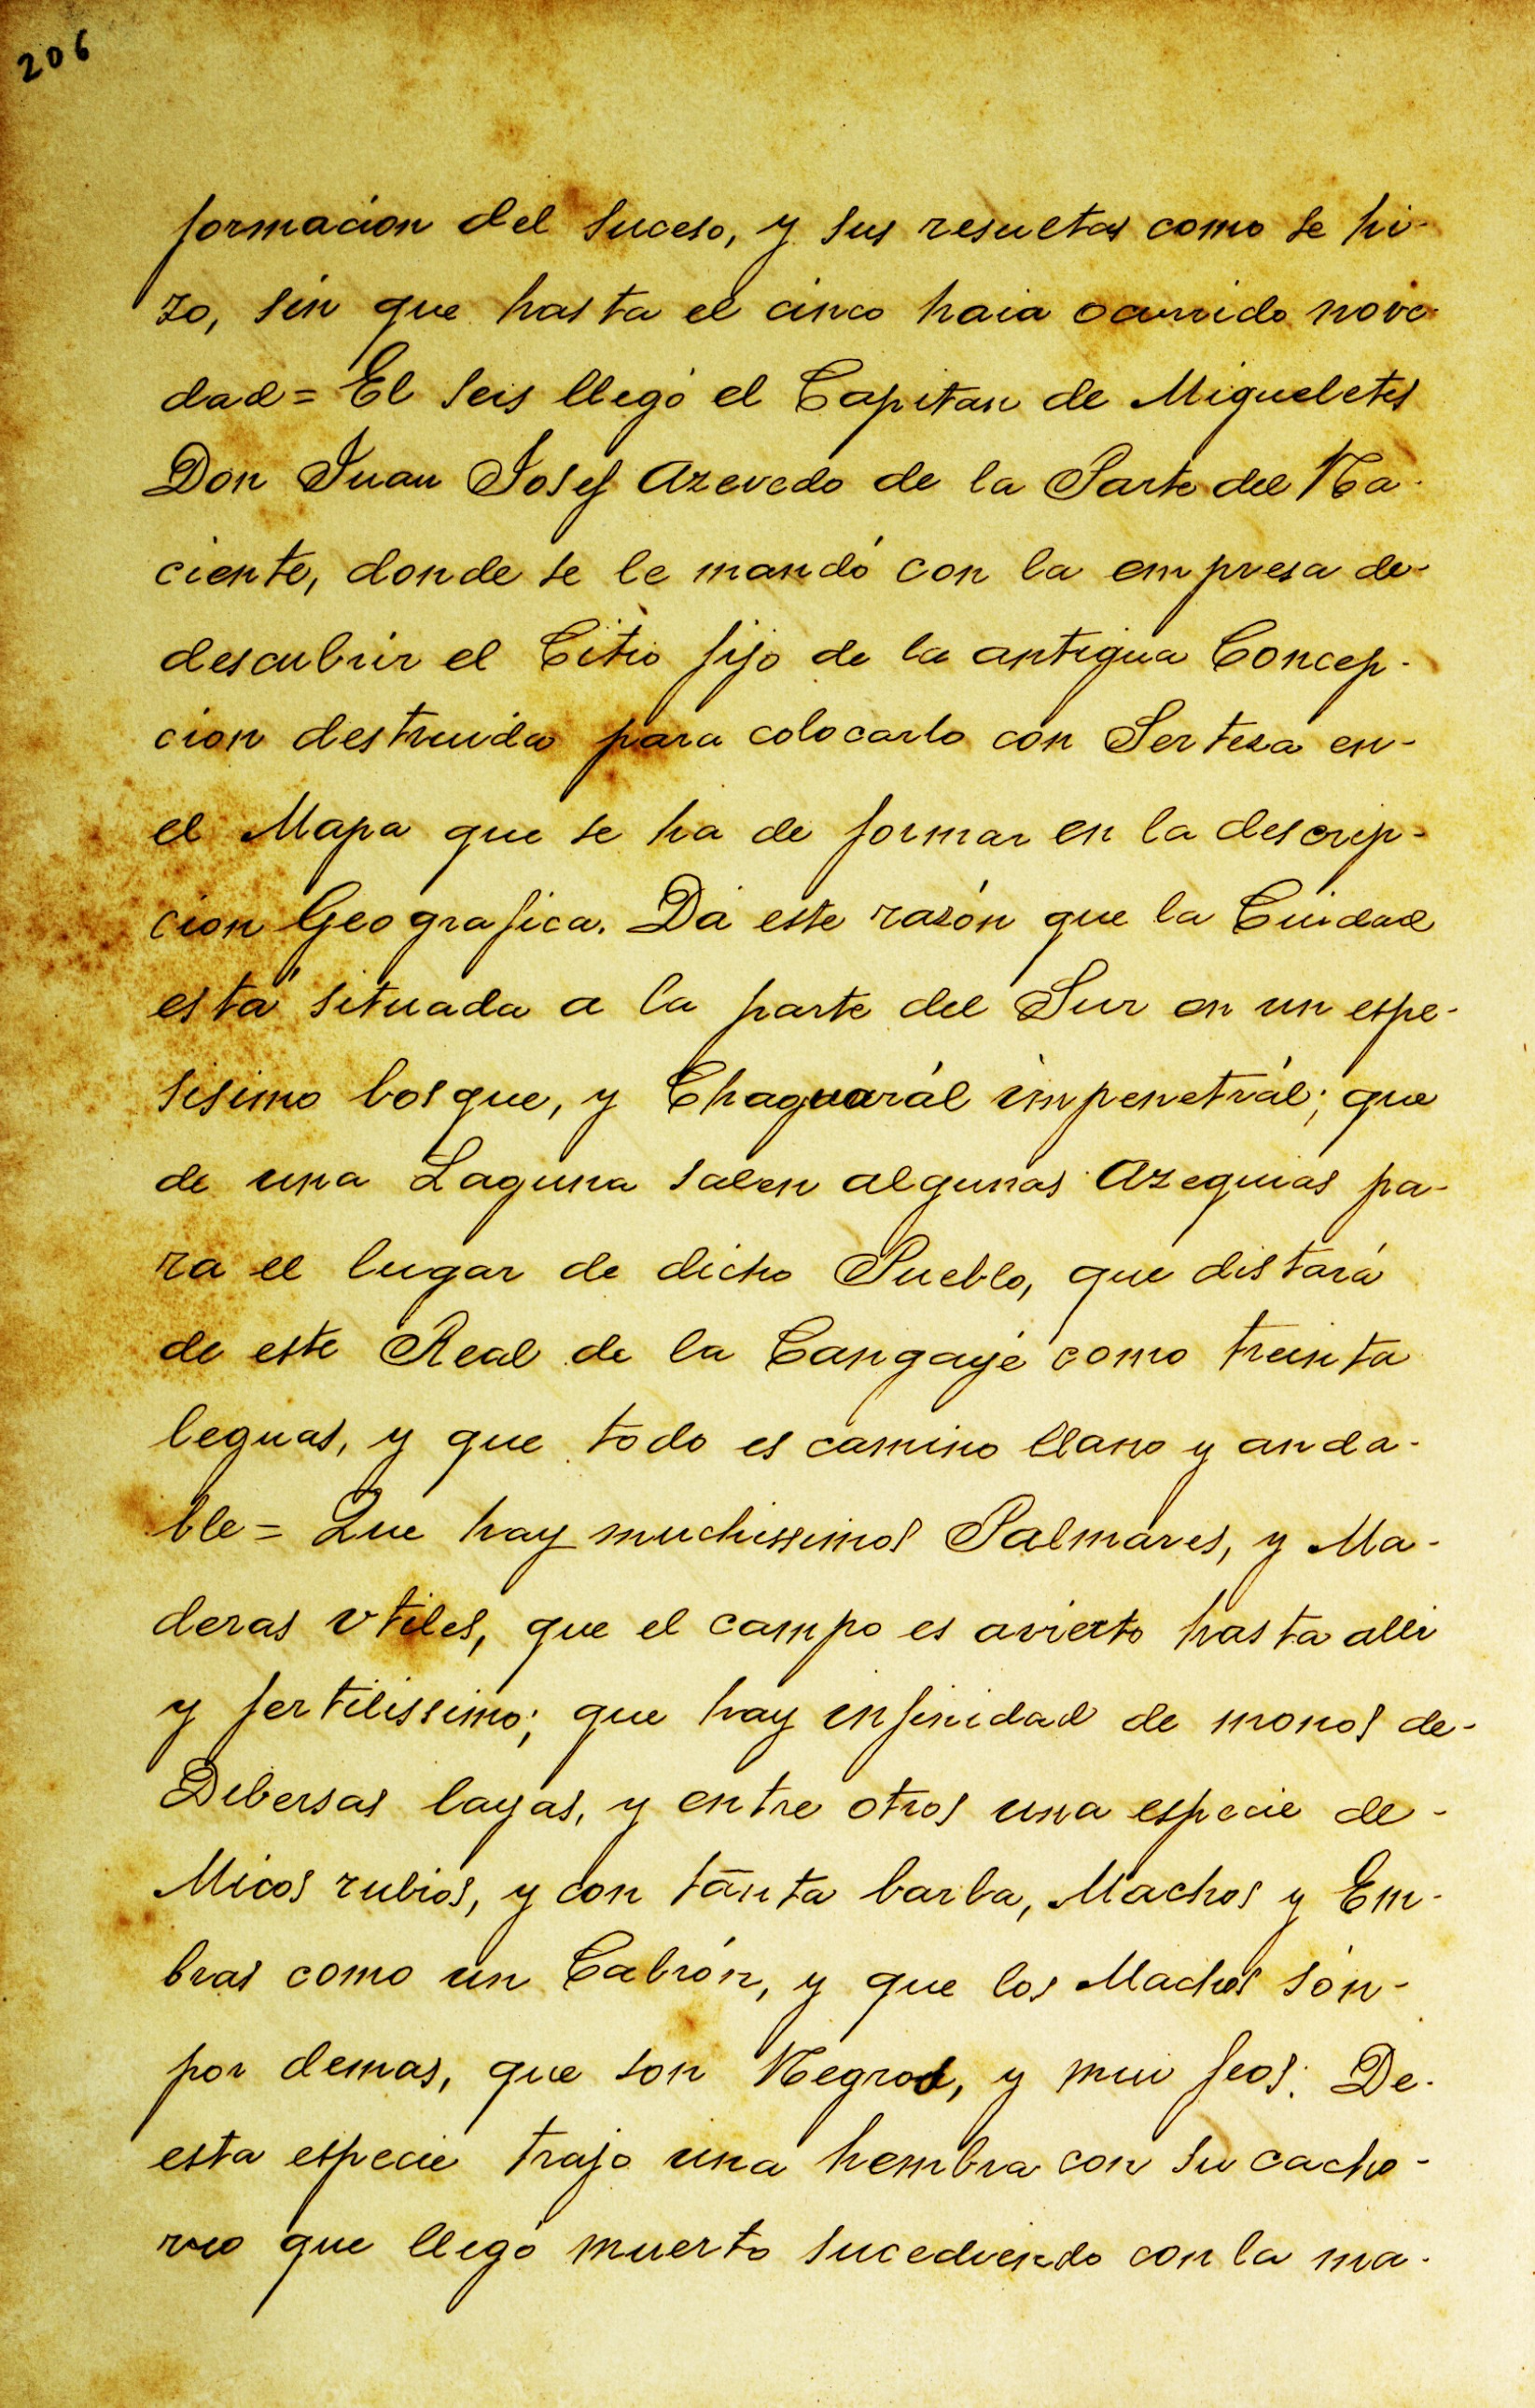 206
formacion del suceso, y sus resultas como se hi-
zo, sin que hasta el cinco haia ocurrido nove-
dad = El seis llegó el Capitan de Migueletes
Don Juan Josef Azevedo de la Parte del Na-
ciente, donde se le mandó con la empresa de-
descubrir el Citio fijo de la antigua Concep-
cion destruida para colocarlo con Serteza en-
el Mapa que se ha de formar en la descrip-
cion Geografica. Dá este razón que la Cuidad
está situada a la parte del Sur en un espe-
sisimo bosque, y Chaguarál impenetrál; que
de una Laguna salen algunas Azequias pa-
ra el lugar de dicho Pueblo, que distará
de este Real de la Cangayé como treinta
leguas, y que todo es camino llano y anda-
ble = Que hay muchissimos Palmáres, y Ma-
deras vtiles, que el campo es avierto hasta alli
y fertilissimo; que hay infinidad de monos de-
Dibersas layas, y entre otros una especie de-
Micos rubios, y con tānta barba, Machos y Em-
bras como un Cabrón, y que los Machos són-
por demas, que son Negros, y mui feos. De-
esta especie trajo una hembra con su cacho-
rro que llegó muerto sucediendo con la ma-